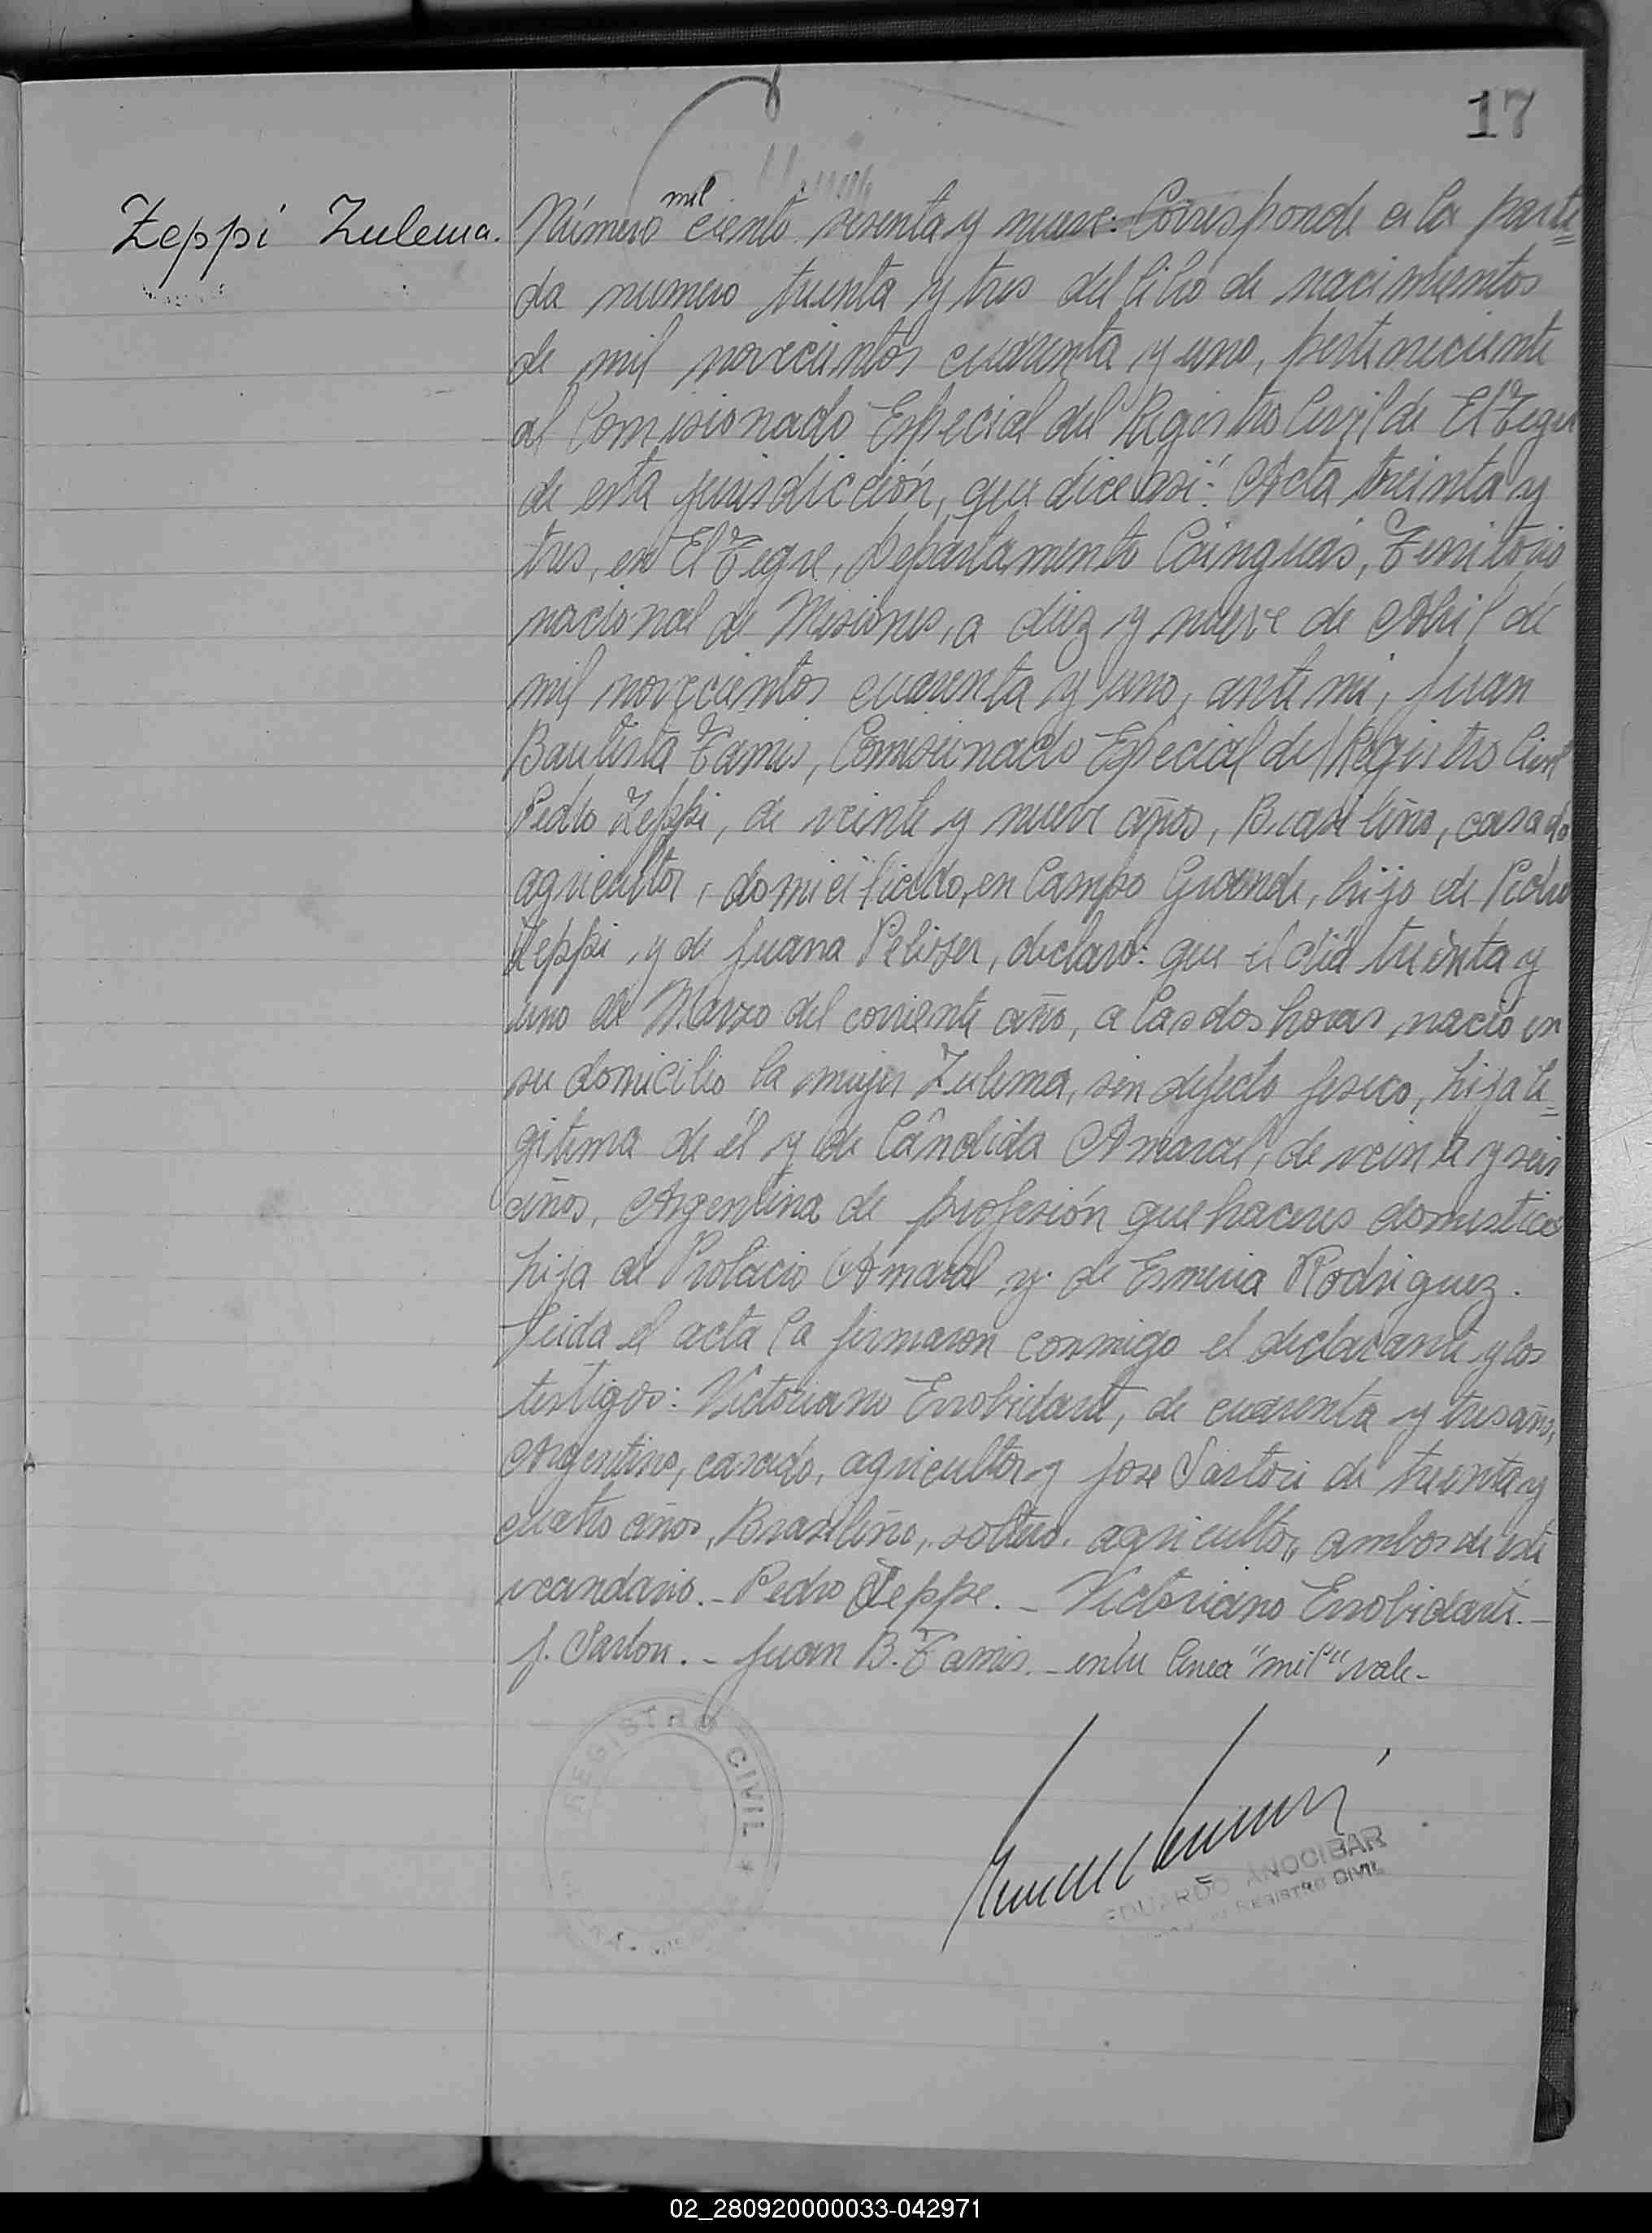 17
Zeppi Zulema.
Número mil ciento sesenta y nueve: Corresponde a la parti=
da numero treinta y tres del libro de nacimientos
de mil novecientos cuarenta y uno, perteneciente
al Comisionado Especial del Registro Civil de El Tegre
de esta jurisdicción, que dice así: Acta treinta y
tres, en El Tegre, Departamento Cainguás, Territorio
nacional de Misiones, a diez y nueve de Abril de
mil novecientos cuarenta y uno, ante mi, Juan
Bautista Tamis, Comisionado Especial del Registro Civil
Pedro Zeppi, de veinte y nueve años, Brasileño, casado
agricultor, domiciliado, en Campo Grande, hijo de Pedro
Zeppi y de Juana Pelizer, declaró: que el día treinta y
uno de Marzo del corriente año, a las dos horas nació en
su domicilio la mujer Zulema, sin defecto fisico, hija le=
gitima de él y de Cândida Amaral, de veinte y seis
años, Argentina de profesión quehaceres domesticos
hija de Protacio Amaral y de Esmeria Rodriguez.
Leida el acta la firmaron conmigo el declarante y los
testigos: Victoriano Errobidart, de cuarenta y tres años,
Argentino, casado, agricultor y Jose Sartori de treinta y
cuatro años, Brasileño, soltero, agricultor, ambos de este
vecindario.- Pedro Zeppe.- Victoriano Errobidart.-
J. Sartori.- Juan B. Tamis.- entre linea "mil" vale-
REGISTRO CIVIL
EDUARDO ANOCIBAR
REGISTRO CIVIL
02_280920000033-042971